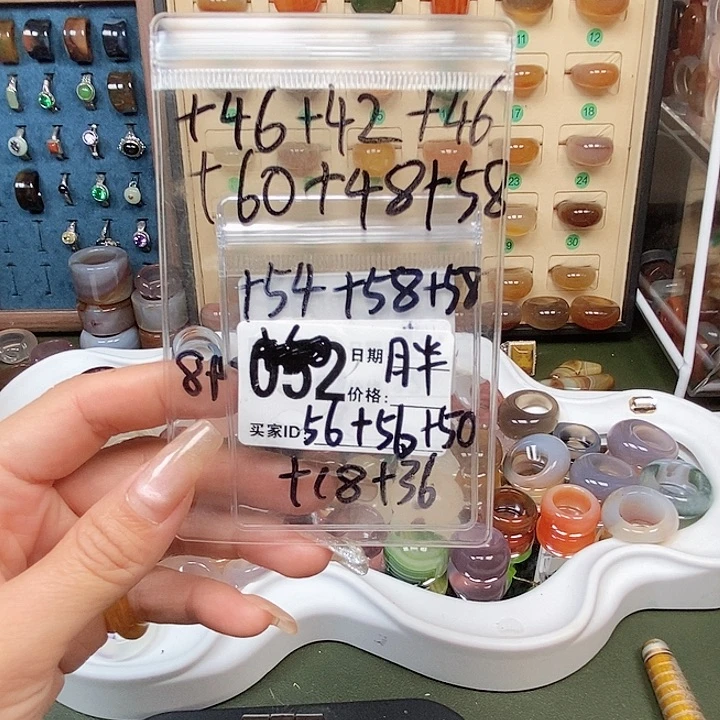 +46+42+46
+60+48+58
+54+58+58
052 日期 胖
价格:
8+
买家ID: 56+56+50
+18+36
11
12
17
18
23
24
30